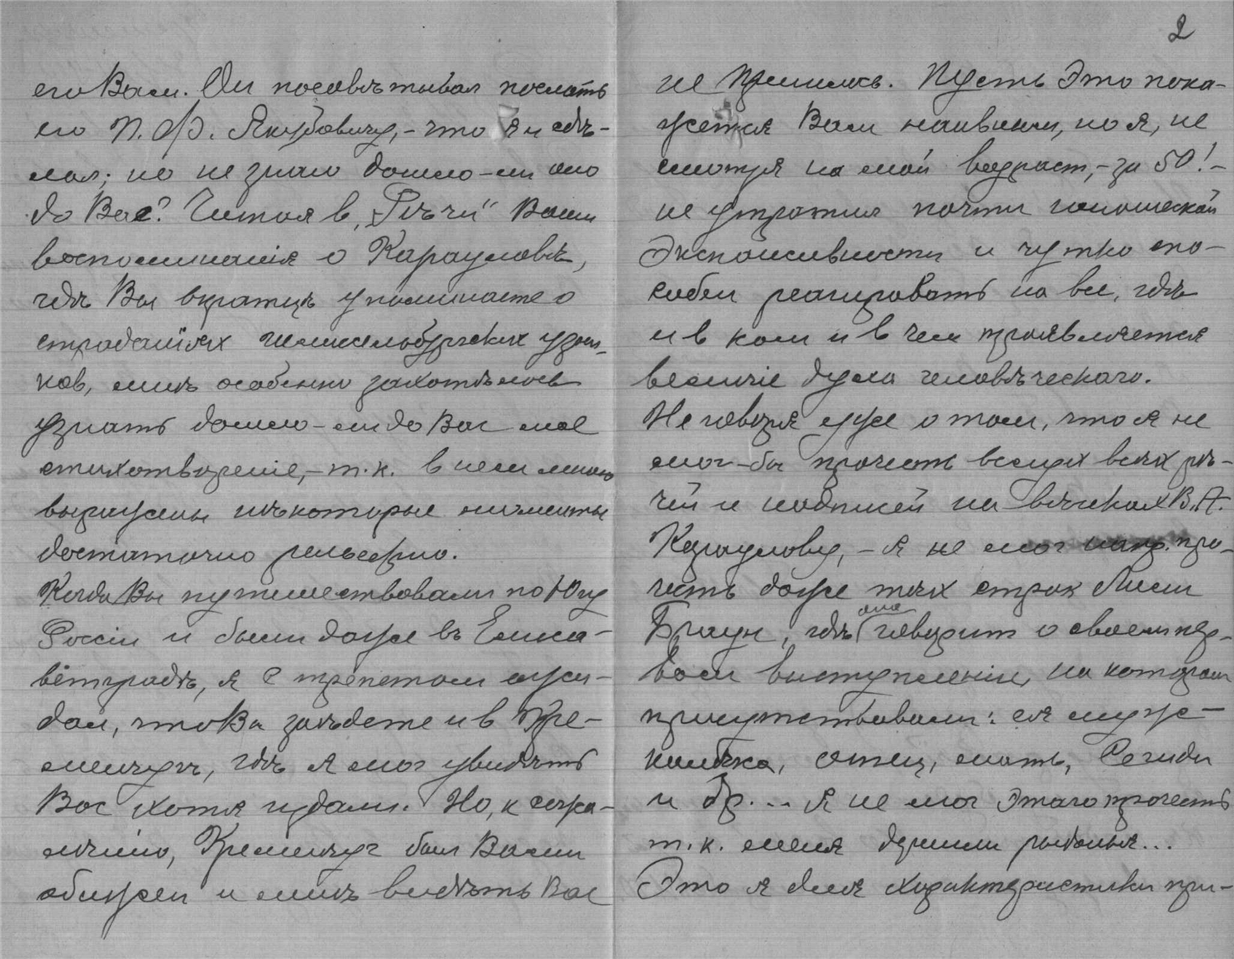 его Вам. Он посовѣтывал послать
его П. Ф. Якубовичу, – что я и сдѣ-
лал; но не знаю дошло-ли оно
до Вас? Читая в „Рѣчи" Ваши
воспоминанія о Карауловѣ,
гдѣ Вы вкратцѣ упоминаете о
страданіях шлиссельбургских узни-
ков, мнѣ особенно захотѣлось
узнать дошло-ли до Вас мое
стихотвореніе, – т. к. в нем мною
выражены нѣкоторые моменты
достаточно рельефно.
Когда Вы путешествовали по Югу
Россіи и были даже въ Елиса-
ветградѣ, я с трепетом ожи-
дал, что Вы заѣдете и в Кре-
менчуг, гдѣ я мог увидѣть
Вас хотя издали. Но, к сожа-
лѣнію, Кременчуг был Вами
обижен и мнѣ видѣть Вас
2
не пришлось. Пусть это пока-
жется Вам наивным, но я, не
смотря на мой возраст, – за 50! –
не утратил почти юношеской
экспансивности и чутко спо-
собен реагировать на все, гдѣ
и в ком и в чем проявляется
величіе духа человѣческаго.
Не говоря уже о том, что я не
мог-бы прочесть вслух всѣх рѣ-
чей и надписей на вѣнках В. А.
Караулову, – я не мог напр. про-
честь даже тѣх строк Лили
Браун, гдѣ она говорит о своем пер-
вом выступленіи, на котором
присутствовали: ея муж-
калѣка, отец, мать, Сегиди
и др... Я не мог этого прочесть
т. к. меня душили рыданья...
Это я для характеристики при-